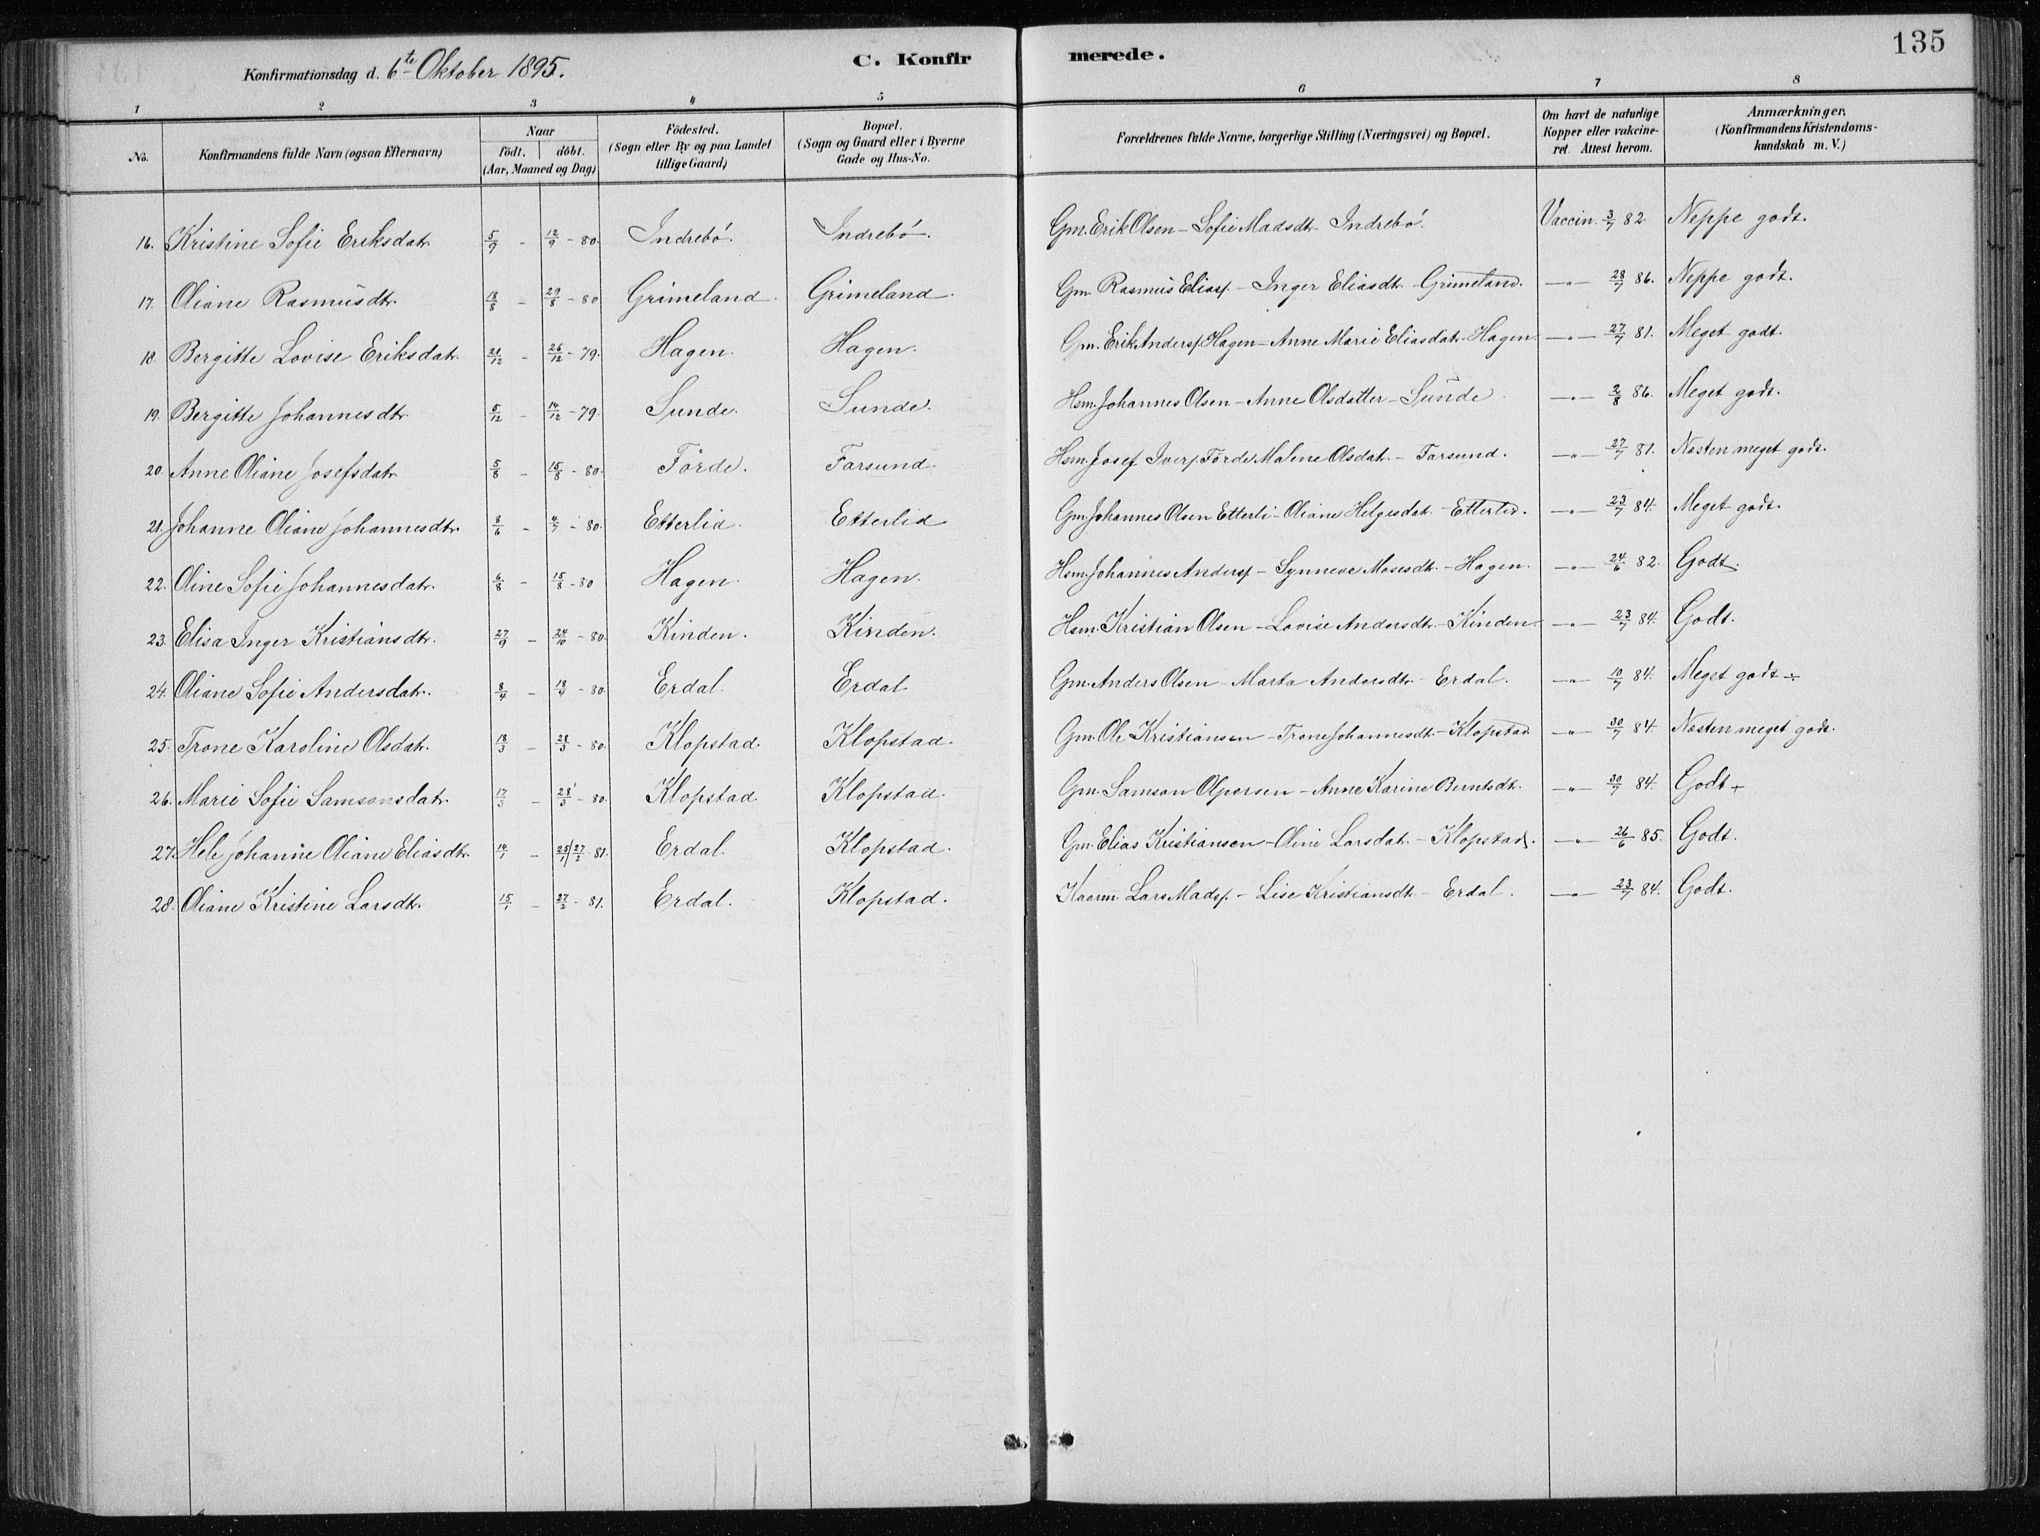 135
Konfirmationsdag d. 6te Oktober 1895. C. Konfirmerede.
1 2 3 4 5 6 7 8
No. Konfirmandens fulde Navn (ogsaa Efternavn) Naar födt. döbt. (Aar, Maaned og Dag) Födested. (Sogn eller By og paa Landet tillige Gaard) Bopæl. (Sogn og Gaard eller i Byerne Gade og Hus-No. Forældrenes fulde Navne, borgerlige Stilling (Næringsvei) og Bopæl. Om havt de naturlige Kopper eller vakcineret. Attest herom. Anmærkninger. (Konfirmandens Kristendomskundskab m. V.)
16. Kristine Sofie Eriksdatr 5/9 - 12/9 - 80. Indrebö. Indrebö. Gm. Erik Olsen - Sofie Madsdtr Indrebö. Vaccin. 3/7 82. Neppe godt.
17. Oliane Rasmusdtr. 18/8 - 29/8 - 80 Grimeland. Grimeland. Gm. Rasmus Eliass. - Inger Eliasdtr. Grimeland. -"- 28/7 86. Neppe godt.
18. Bergitte Lovise Eriksdatr. 21/12 - 26/12 - 79. Hagen. Hagen. Gm. Erik Anderss. Hagen - Anne Marie Eliasdatr Hagen -"- 27/7 81. Meget godt.
19. Bergitte Johannesdtr 5/12 - 14/12 - 79. Sunde. Sunde. Hsm. Johannes Olsen - Anne Olsdatter - Sunde. -"- 2/8 86. Meget godt.
20. Anne Oliane Josefsdatr 5/8 - 15/8 - 80. Förde. Farsund. Hsm. Josef Ivers. Förde Malene Olsdatr. - Farsund. -"- 27/7 81. Næsten meget godt.
21. Johanne Oliane Johannesdtr. 8/6 - 4/7 - 80. Etterlid. Etterlid Gm Johannes Olsen Etterli - Oliane Helgesdatr. Etterlid. -"- 23/7 84. Meget godt.
22. Oline Sofie Johannesdatr. 6/8 - 15/8 - 80 Hagen. Hagen. Hsm. Johannes Anderss. - Synneve Mosesdtr. - Hagen. -"- 24/6 82. Godt.
23. Elisa Inger Kristiansdtr. 27/9 - 24/10 - 80. Kinden. Kinden. Hsm. Kristian Olsen - Lovise Andersdtr. - Kinden -"- 23/7 84. Godt.
24. Oliane Sofie Andersdatr. 8/4 - 18/4 - 80. Erdal. Erdal Gm. Anders Olsen - Marta Andersdtr - Erdal. -"- 10/7 84. Meget godt ÷
25. Trone Karoline Olsdatr. 18/3 - 28/3 - 80. Klopstad. Klopstad. Gm. Ole Kristiansen - Trone Johannesdtr. - Klopstad -"- 30/7 84. Næsten meget godt.
26. Marie Sofie Samsonsdatr. 17/3 - 28/3 - 80. Klopstad. Klopstad. Gm. Samson - Anne Karine Berntsdtr. -"- 30/7 84. Godt +
27. Hele Johanne Oliane Eliasdtr 14/1 - 25/1 27/2 81. Erdal. Klopstad. Gm. Elias Kristiansen - Oline Larsdatr. - Klopstad. -"- 26/6 85. Godt.
28. Oliane Kristine Larsdtr. 15/1 - 27/2 - 81. Erdal. Klopstad. Kaarm. Lars Madss. - Lise Kristiansdtr - Erdal. -"- 23/7 84. Godt.